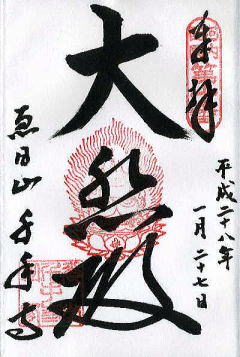 奉拝
平成二十八年
一月二十七日
大悲殿
恵日山
千手寺